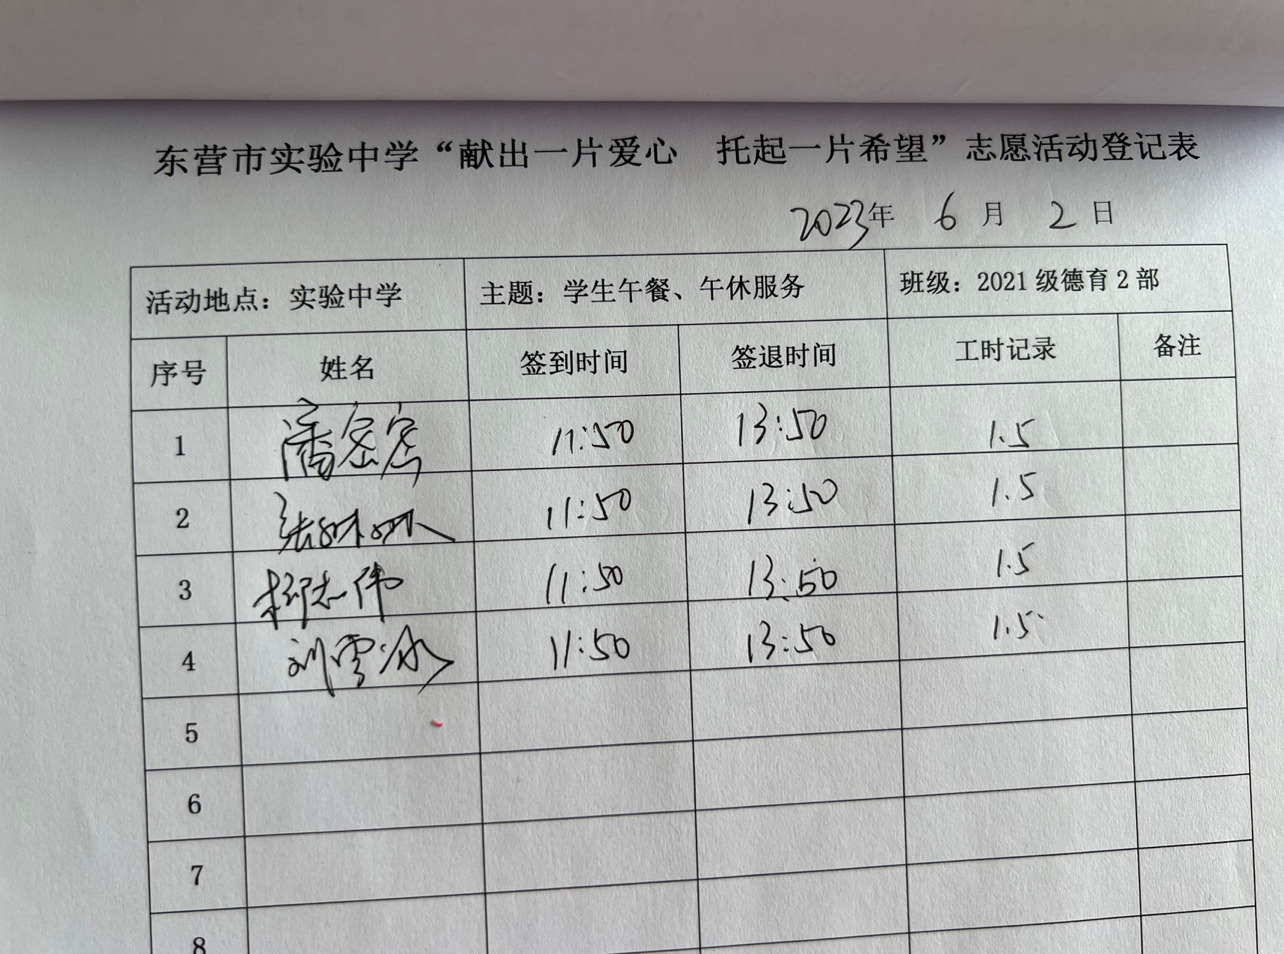 东营市实验中学“献出一片爱心 托起一片希望”志愿活动登记表
2023年 6 月 2 日
活动地点：实验中学 主题：学生午餐、午休服务 班级：2021级德育2部
序号 姓名 签到时间 签退时间 工时记录 备注
1 潘密密 11:50 13:50 1.5
2 张林林 11:50 13:50 1.5
3 志伟 11:50 13:50 1.5
4 刘雪冰 11:50 13:50 1.5
5
6
7
8